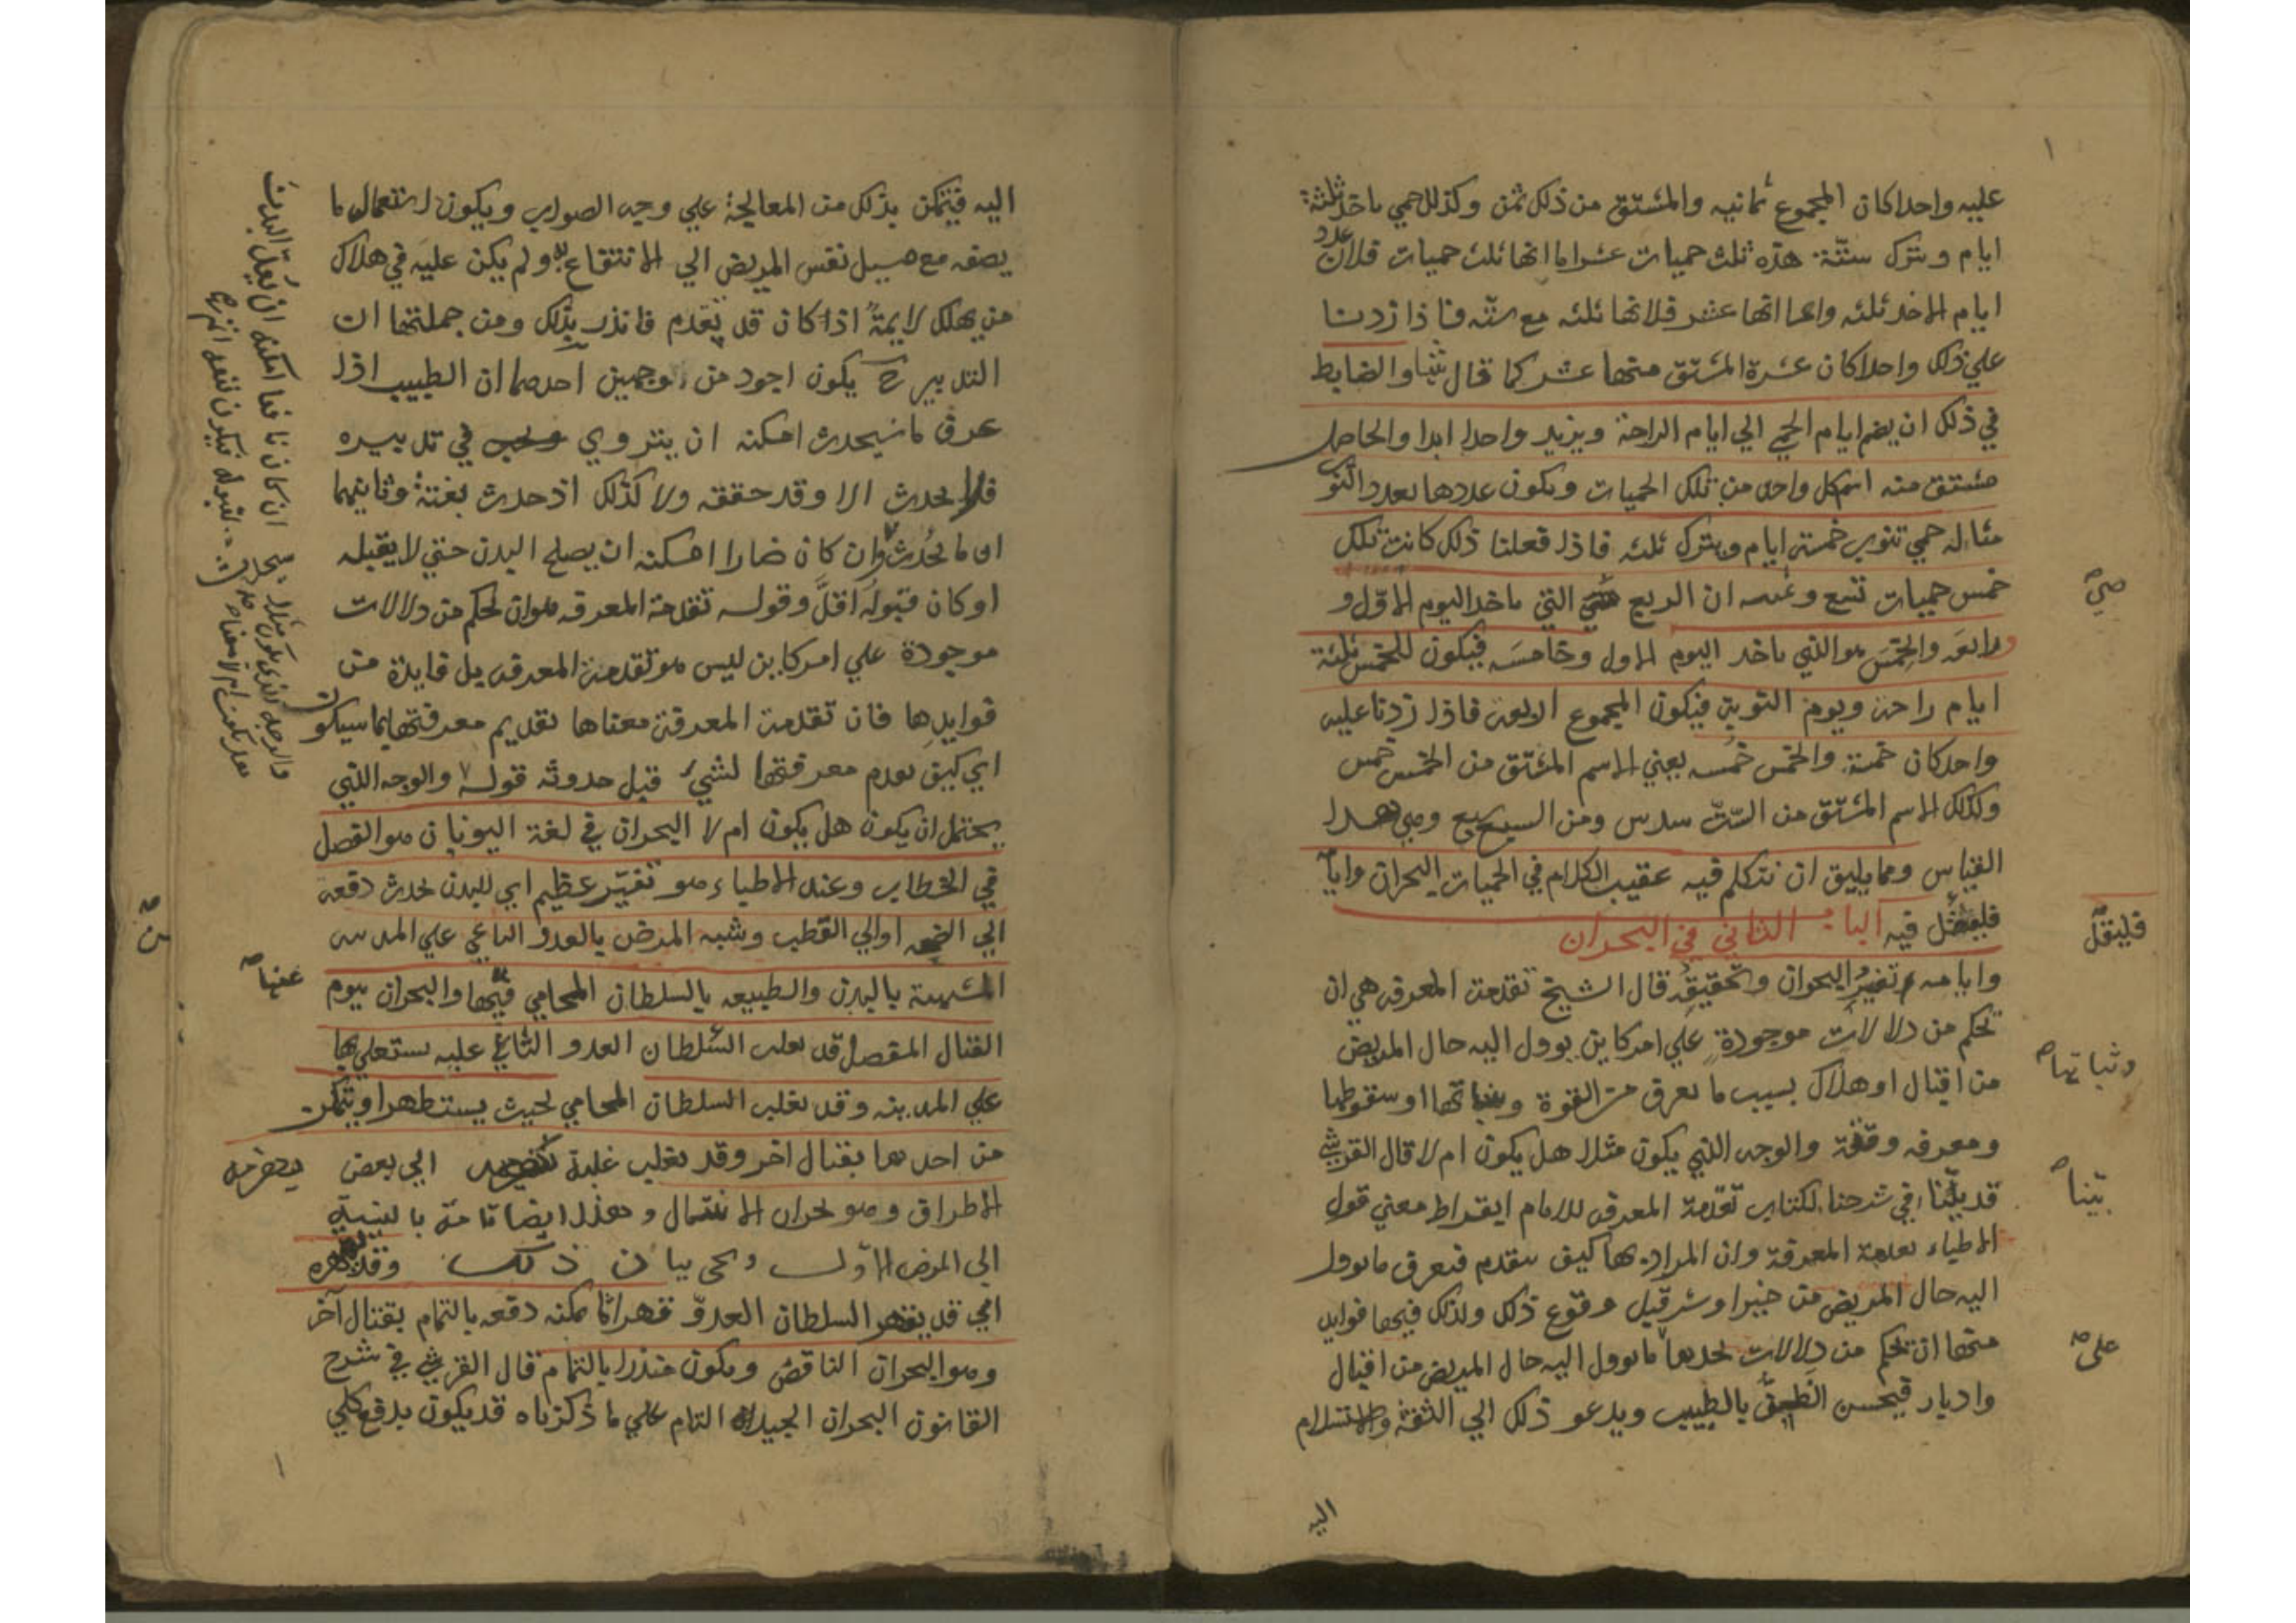 عليه واحدا كان المجموع ثمانيه والمشتق من ذلك ثمن وكذلك حمي ياخذ ثلثة
ايام ويترك ستة هذه ثلث حميات عشر اما انها ثلث حميات فلان عدد
ايام الاخذ ثلثه واما انها عشر فلانها ثلثه مع سته فاذا زدنا
علي ذلك واحدا كان عشرة المشتق منها عشر كما قال والضابط
في ذلك ان يضم ايام الحمي الي ايام الراحة ويزيد واحدا ابدا والحاصل
مشتق منه اسم كل واحد من تلك الحميات ويكون عددها بعدد النوب
مثاله حمي تنوب خمسة ايام ويترك ثلثه فاذا فعلنا ذلك كانت تلك
خمس حميات تسع ان الربع هي التي ياخذ اليوم الاول و
ورابعه والخمس هو الذي ياخذ اليوم الاول وخامسه فيكون للخمس ثلثة
ايام راحة ويوم النوبة فيكون المجموع اربعة فاذا زدنا عليه
واحد كان خمسة والخمس خمسه يعني الاسم المشتق من الخمس خمس
وكذلك الاسم المشتق من الست سدس ومن السبع سبع وعلي هذا
القياس ومما يليق ان نتكلم فيه عقيب الكلام في الحميات البحران وايا
فلينقل فيه الباب الثاني في البحران
وايامه تفسير البحران وتحقيقه قال الشيخ تقدمة المعرفه هي ان
تحكم من دلالات موجودة علي امر كاين يوول اليه حال المريض
من اقبال او هلاك بسبب ما يعرق من القوة وثباتها او سقوطها
ومعرفه وقته والوجه الذي يكون مثلا هل يكون ام لا قال القرشي
قد بينا في شرحنا لكتاب تقدمة المعرفه للامام ابقراط معني قول
الاطباء تقدمة المعرفة وان المراد بها كيف يتقدم فيعرف ما يوول
اليه حال المريض من خير او شر قبل وقوع ذلك ولذلك فيها فوايد
منها ان تحكم من دلالات ما يوول اليه حال المريض من اقبال
وادبار فيحسن الظن بالطبيب ويدعو ذلك الي الثقة والاستسلام
صح
فلينقل
وثباتها صح
بينا صح
علي صح
اليه
اليه فيتمكن بذلك من المعالجة علي وجه الصواب ويكون استعمال ما
يصفه مع ميل نفس المريض الي الانتفاع به ولم يكن عليه في هلاك
من يهلك لايمة اذا كان قد تقدم فانذر بذلك ومن جملتها ان
التدبير ح يكون اجود من الوجهين احدهما ان الطبيب اذا
عرف ما سيحدث امكنه ان يتروي في تدبيره
فلا يحدث الا وقد حققه ولا كذلك اذ حدث بغتة وثانيهما
ان ما يحدث وان كان ضارا امكنه ان يصلح البدن حتي لا يقبله
او كان قبوله اقل وقوله تقدمة المعرفه هو ان تحكم من دلالات
موجودة علي امر كاين ليس هو تقدمة المعرفه بل فايدة من
فوايدها فان تقدمة المعرفة معناها تقديم معرفتها بما سيكون
اي كيف تقدم معرفتها لشيء قبل حدوثه قوله والوجه الذي
يحتمل ان يكون هل يكون ام لا البحران في لغة اليونان هو الفصل
في الخطاب وعند الاطباء هو تغير عظيم اي للبدن يحدث دفعة
الي الصحه او الي العطب وشبه المرض بالعدو الباغي علي المدينه
المشبهة بالبدن والطبيعه بالسلطان المحامي عنها والبحران بيوم
القتال المفصل قد يغلب السلطان العدو الباغي عليه يستعلي بها
علي المدينه وقد يغلب السلطان المحامي بحيث يستظهر او يتمكن
من احدهما بقتال اخر وقد يغلب غلبة الي بعض
الاطراف وهو بحران الانتقال وهذا ايضا تامة بالنسبة
الي المرض الاول ويجي بيان ذلك وقد يقهره
اي قد يقهر السلطان العدو قهرا ثم يمكنه دفعه بالتمام بقتال آخر
وهو البحران الناقص ويكون منذرا بالتمام قال القرشي في شرح
القانون البحران الجيد التام علي ما ذكرناه قد يكون بدفع كلي
عنها صح